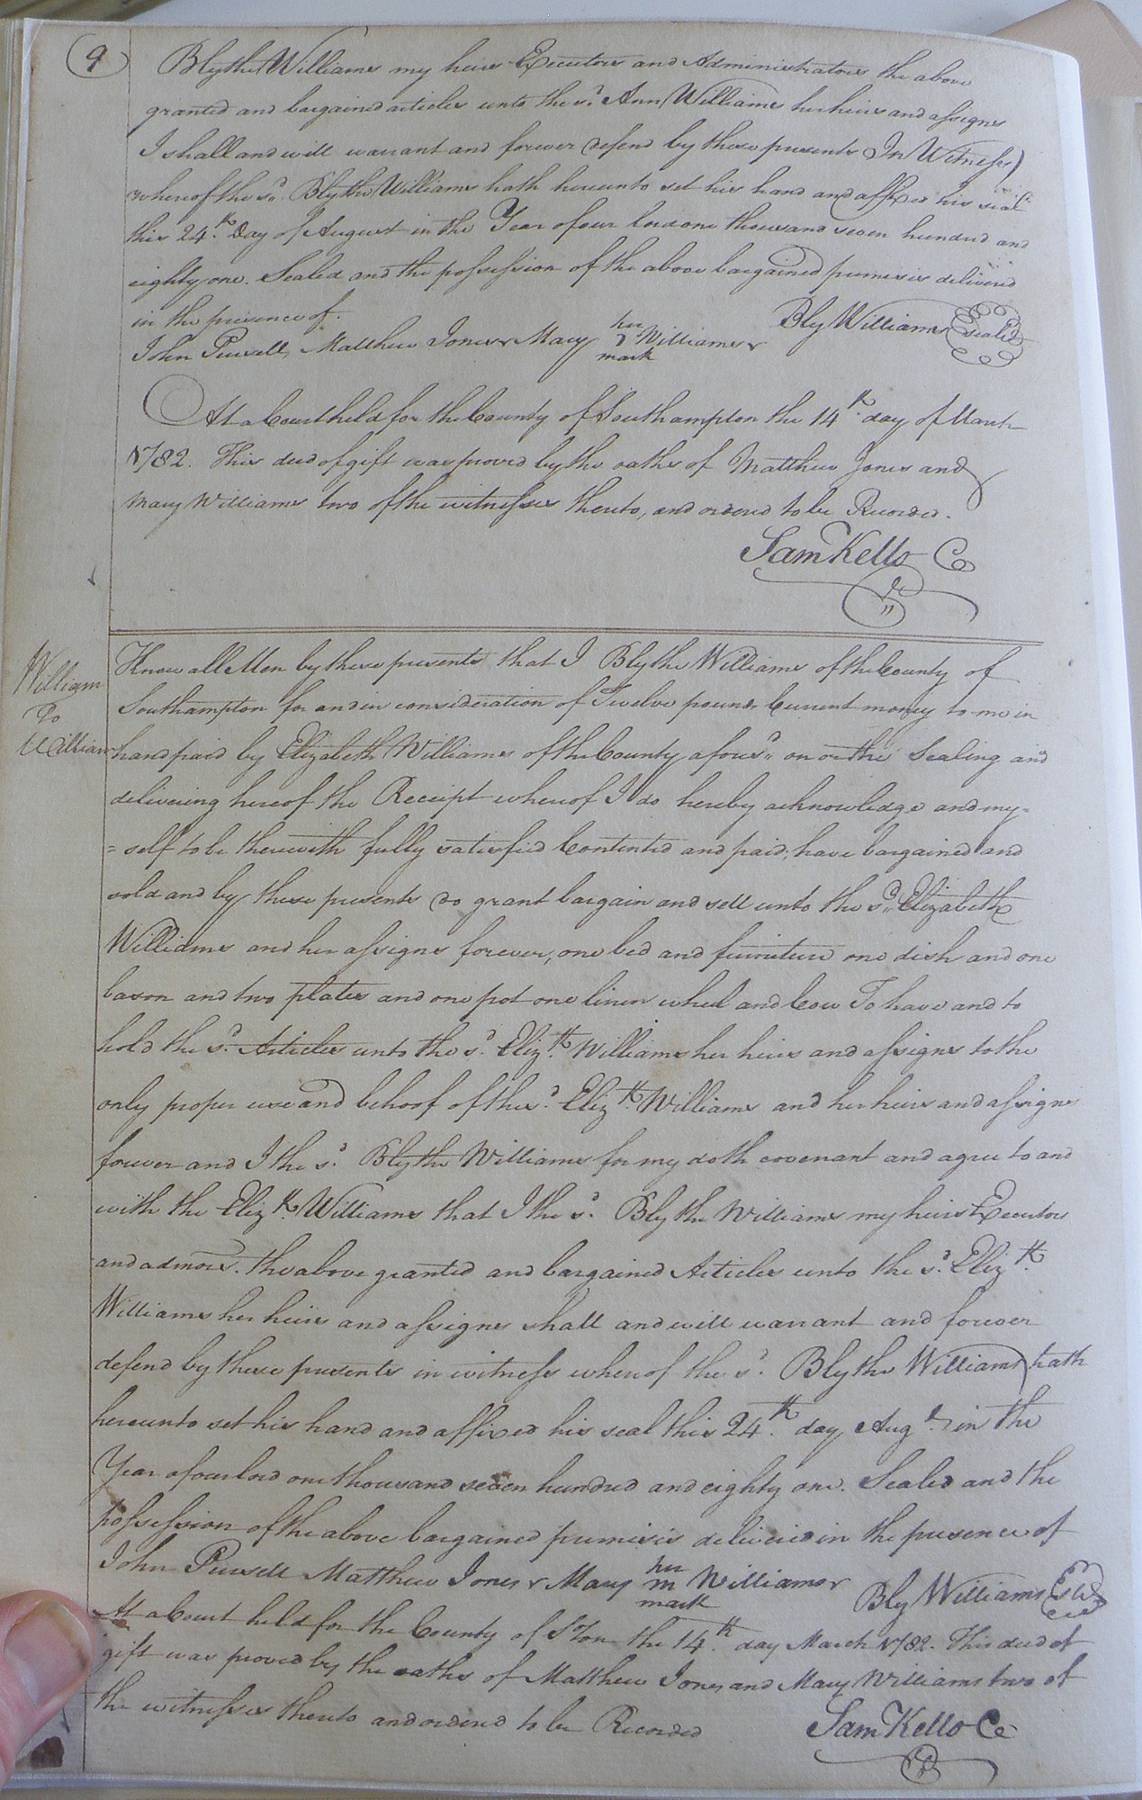 9
Blythe Williams my heirs Executors and Administrators the above
granted and bargained articles unto the sd. Ann Williams her heirs and assigns
I shall and will warrant and forever defend by these presents In Witness
whereof the sd. Blythe Williams hath hereunto set his hand and affixed his seal
this 24th. Day of August in the Year of our lord one thousand seven hundred and
eighty one. Sealed and the possession of the above bargained premises delivered
in the presence of.
Bly Williams seal
John Pursell, Matthew Jones Mary her mark Williams
At a Court held for the County of Southampton the 14th. day of March
1782. This deed of gift was proved by the oaths of Matthew Jones and
Mary Williams two of the witnesses thereto, and ordered to be Recorded.
Sam Kello Cc
William
To
William
Know all Men by these presents that I Blythe Williams of the County of
Southampton for and in consideration of Twelve pounds Current money to me in
hand paid by Elizabeth Williams of the County aforesd. on or the Sealing and
delivering hereof the Receipt whereof I do hereby acknowledge and my=
=self to be therewith fully satisfied Contented and paid, have bargained and
sold and by these presents do grant bargain and sell unto the sd. Elizabeth
Williams and her assigns forever, one bed and furniture one dish and one
bason and two plates and one pot one linen wheel and Cow To have and to
hold the sd. Articles unto the sd. Elizth. Williams her heirs and assigns to the
only proper use and behoof of the sd. Elizth. Williams and her heirs and assigns
forever and I the sd. Blythe Williams for my doth covenant and agree to and
with the Elizth. Williams that I the sd. Blythe Williams my heirs Executors
and admors. the above granted and bargained Articles unto the sd. Elizth.
Williams her heirs and assigns shall and will warrant and forever
defend by these presents in witness whereof the sd. Blythe Williams hath
hereunto set his hand and affixed his seal this 24th. day Augt. in the
Year of our lord one thousand seven hundred and eighty one. Sealed and the
possession of the above bargained premises delivered in the presence of
John Pursell Matthew Jones Mary her m mark Williams
Bly Williams
At a Court held for the County of Soton the 14th. day March 1782. This deed of
gift was proved by the oaths of Matthew Jones and Mary Williams two of
the witnesses thereto and ordered to be Recorded
Sam Kello Cc